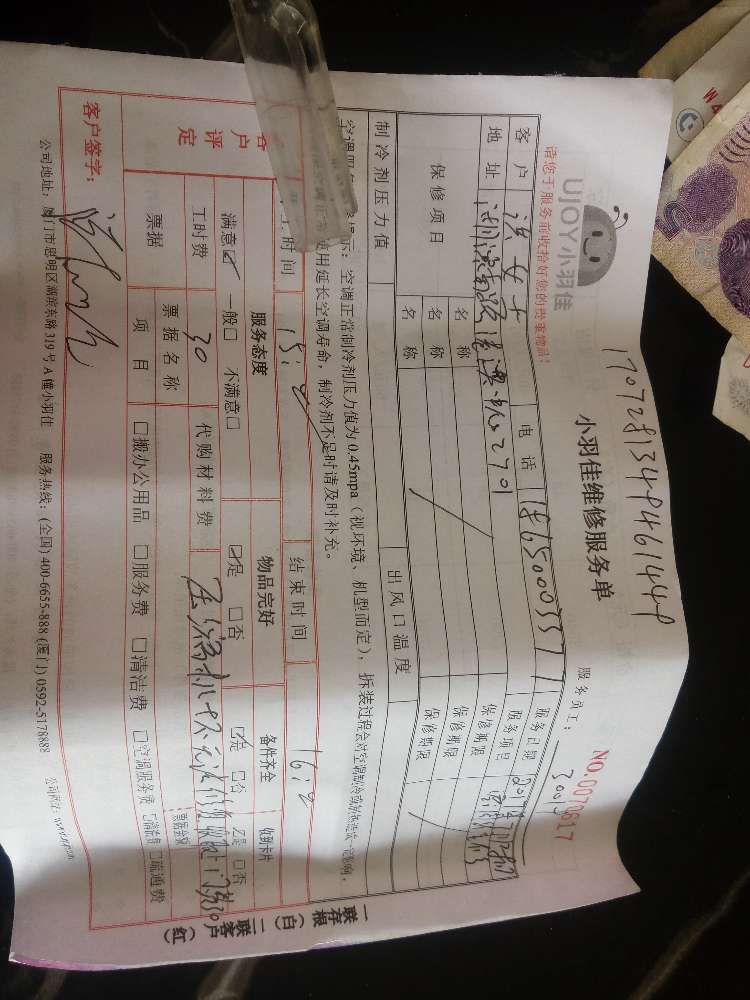 170728134P461444P
UJOY小羽佳
小羽佳维修服务单
NO.0070617
请您于服务前收拾好您的贵重物品!
服务员工:
客户 洪女士 电话 服务日期
地址 2701 服务项目
保修项目 名称 保修期限
名称 保修期限
名称 保修期限
制冷剂压力值 出风口温度
示:空调正常制冷剂压力值为0.45mpa(视环境、机型而定),拆装过程会对空调制冷或
用延长空调寿命,制冷剂不足时请及时补充。
时间 15: 结束时间 16:
客户评定 服务态度 物品完好 备件齐全 收到卡片
满意☑ 一般□ 不满意□ ☑是 □否 ☑是 □否 ☑是 □否
工时费 30 代购材料费 压缩机坏无法修复
票据 票据名称 票据金额
项目 □搬办公用品 □服务费 □清洁费 □空调服务费 □消毒费 □疏通费
客户签字:
一联存根(白) 二联客户(红)
公司地址:厦门市思明区湖滨东路319号A幢小羽佳 服务热线:(全国)400-6655-888(厦门)0592-5178888